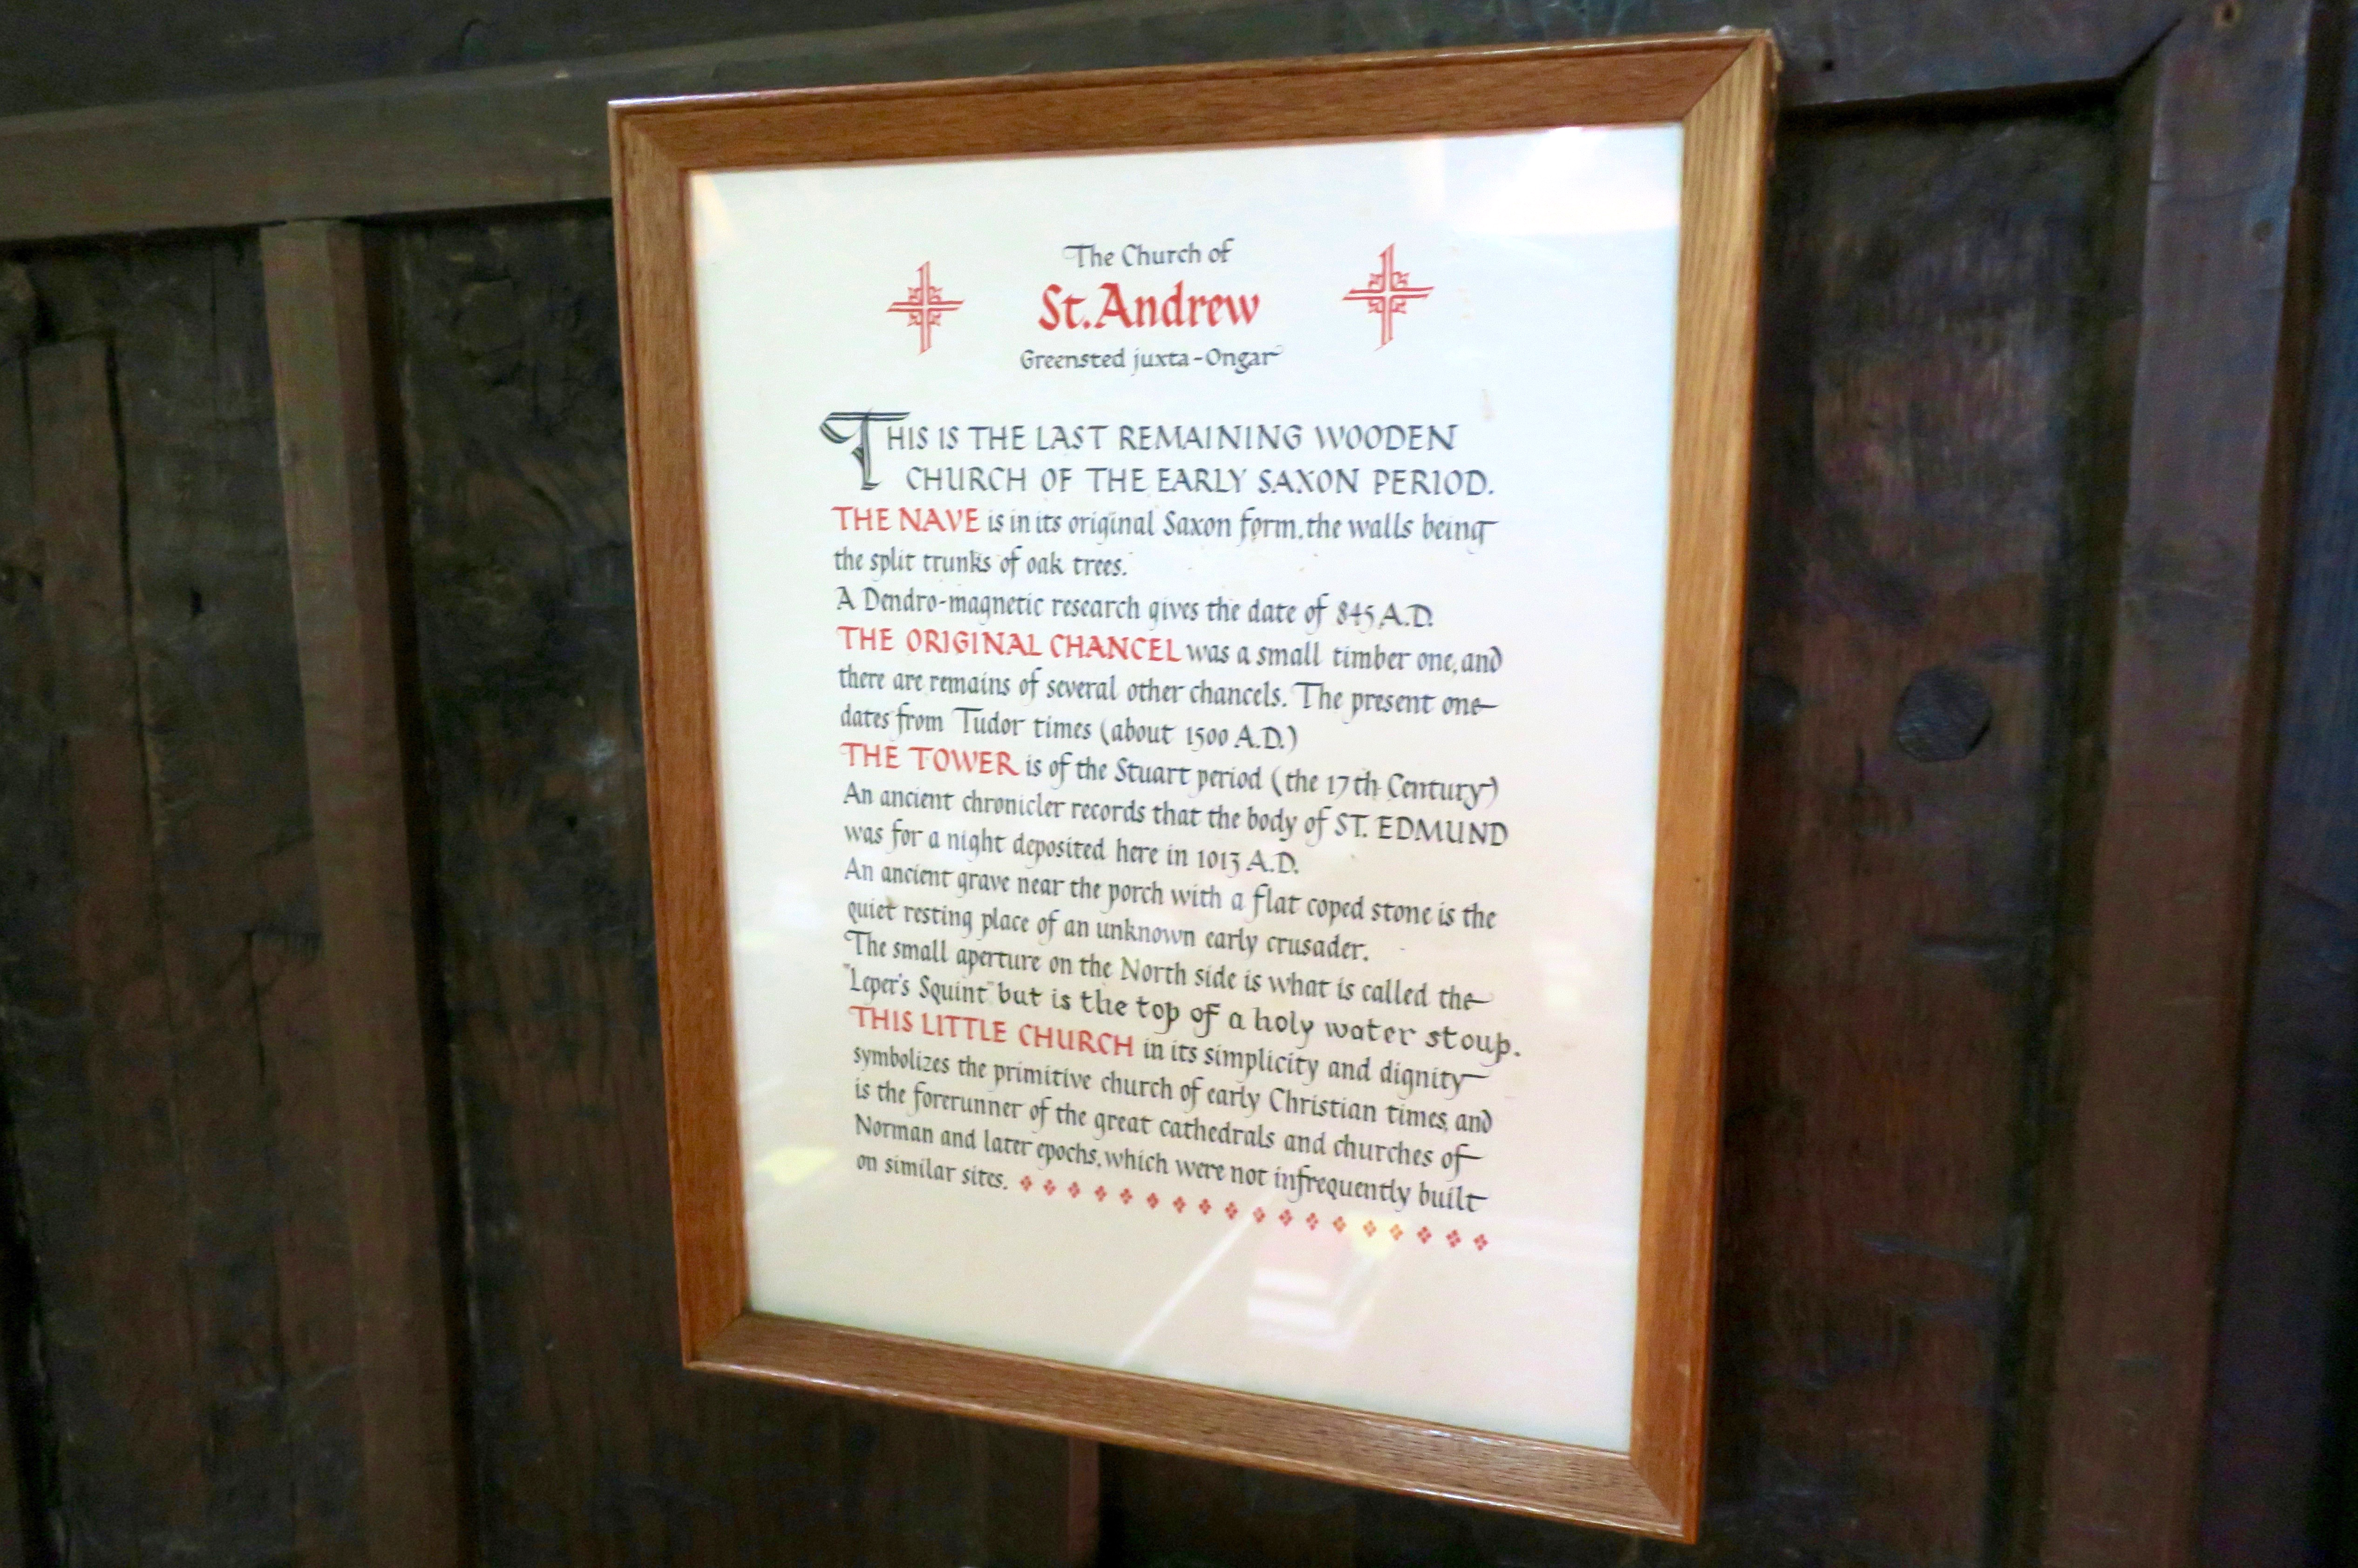 The Church of
St. Andrew
Greensted juxta-Ongar
THIS IS THE LAST REMAINING WOODEN
CHURCH OF THE EARLY SAXON PERIOD.
THE NAVE is in its original Saxon form, the walls being
the split trunks of oak trees.
A Dendro-magnetic research gives the date of 845 A.D.
THE ORIGINAL CHANCEL was a small timber one, and
there are remains of several other chancels. The present one
dates from Tudor times (about 1500 A.D.)
THE TOWER is of the Stuart period (the 17th Century)
An ancient chronicler records that the body of ST. EDMUND
was for a night deposited here in 1013 A.D.
An ancient grave near the porch with a flat coped stone is the
quiet resting place of an unknown early crusader.
The small aperture on the North side is what is called the
"Leper's Squint" but is the top of a holy water stoup.
THIS LITTLE CHURCH in its simplicity and dignity
symbolizes the primitive church of early Christian times, and
is the forerunner of the great cathedrals and churches of
Norman and later epochs, which were not infrequently built
on similar sites.